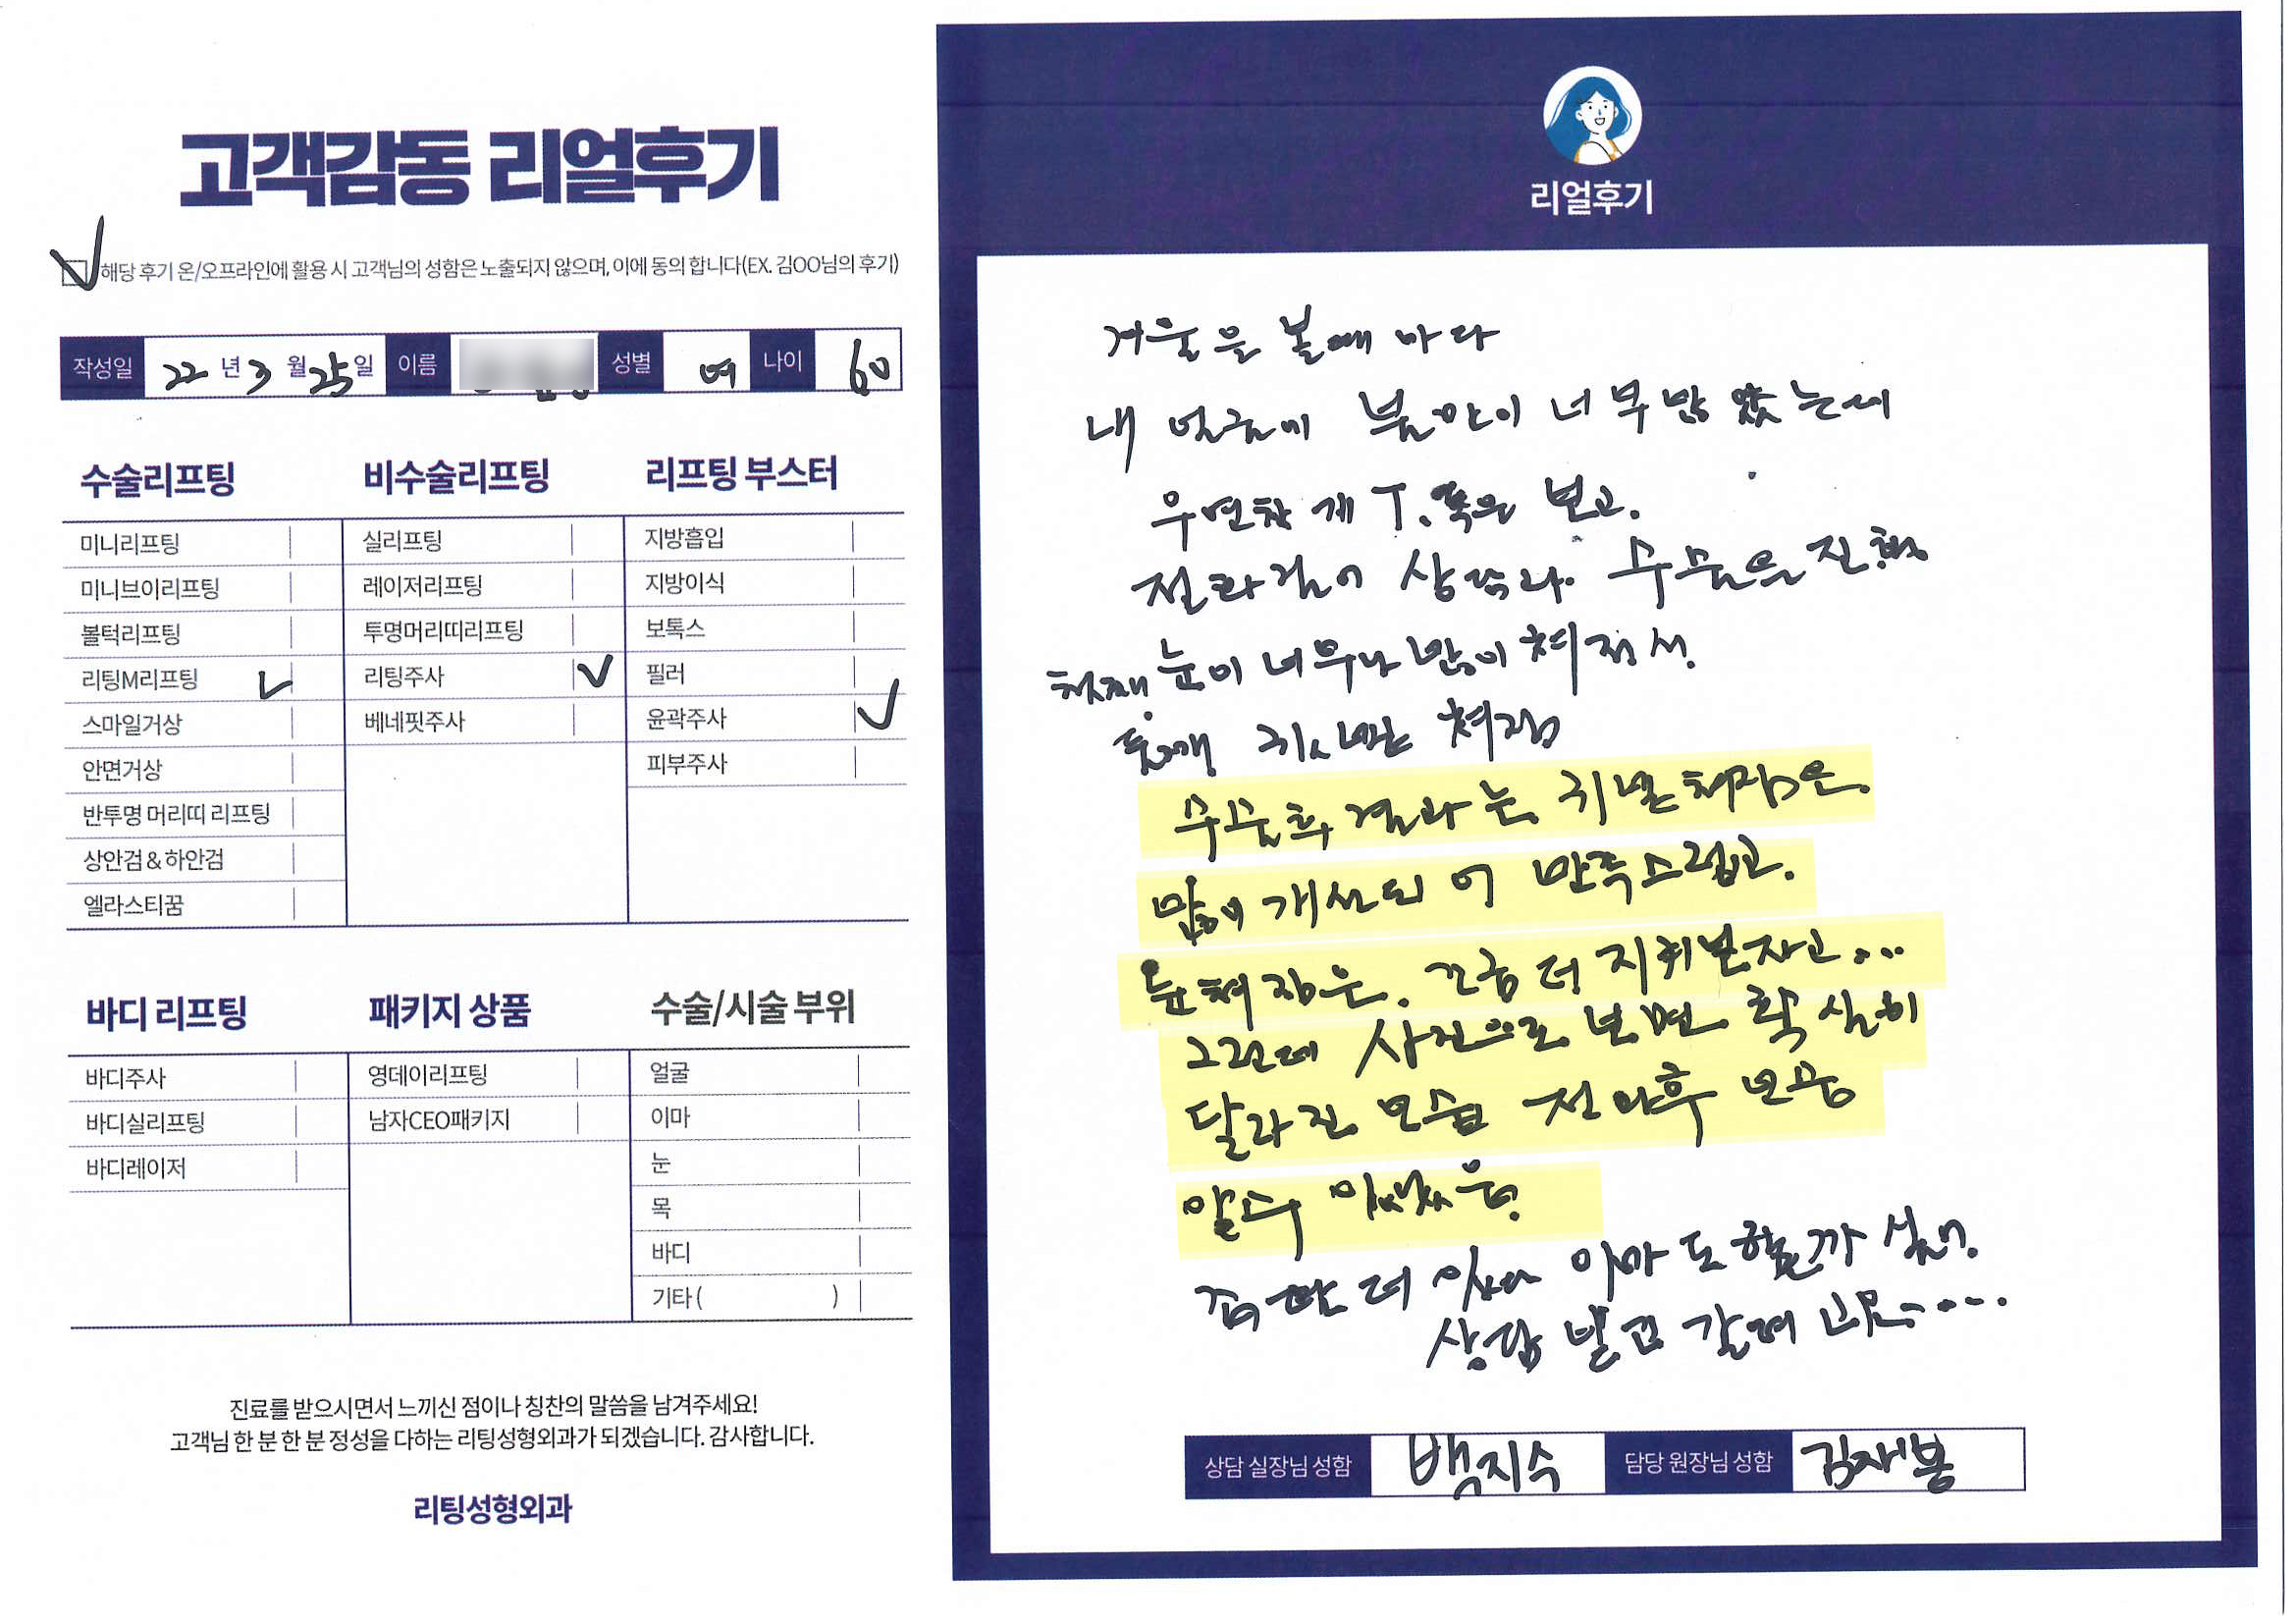 고객감동 리얼후기
해당 후기 온/오프라인에 활용 시 고객님의 성함은 노출되지 않으며, 이에 동의 합니다(EX. 김OO님의 후기)
작성일 22년 3월 25일 이름 성별 여 나이 60
수술리프팅
미니리프팅
미니브이리프팅
볼턱리프팅
리팅M리프팅
스마일거상
안면거상
반투명 머리띠 리프팅
상안검 & 하안검
엘라스티꿈
비수술리프팅
실리프팅
레이저리프팅
투명머리띠리프팅
리팅주사
베네핏주사
리프팅 부스터
지방흡입
지방이식
보톡스
필러
윤곽주사
피부주사
바디 리프팅
바디주사
바디실리프팅
바디레이저
패키지 상품
영데이리프팅
남자CEO패키지
수술/시술 부위
얼굴
이마
눈
목
바디
기타 ( )
진료를 받으시면서 느끼신 점이나 칭찬의 말씀을 남겨주세요!
고객님 한 분 한 분 정성을 다하는 리팅성형외과가 되겠습니다. 감사합니다.
리팅성형외과
리얼후기
거울을 볼때 마다
내 얼굴에 불만이 너무 많았는데
우연찮게 T. 보고.
전화 상담. 수술을 진행
첫째 눈이 너무나 많이 쳐져서.
둘째 쳐짐
수술후 결과는. 쳐짐은.
많이 개선되어 만족스럽고.
눈쳐짐은. 조금 더 지켜보자고...
그런데 사진으로 보면 확실히
달라진 모습 전과후 모습
알수 있었음.
더 있다 이마도 할까 싶어.
상담 받고 갈려고
상담 실장님 성함 백지수 담당 원장님 성함 김재봉